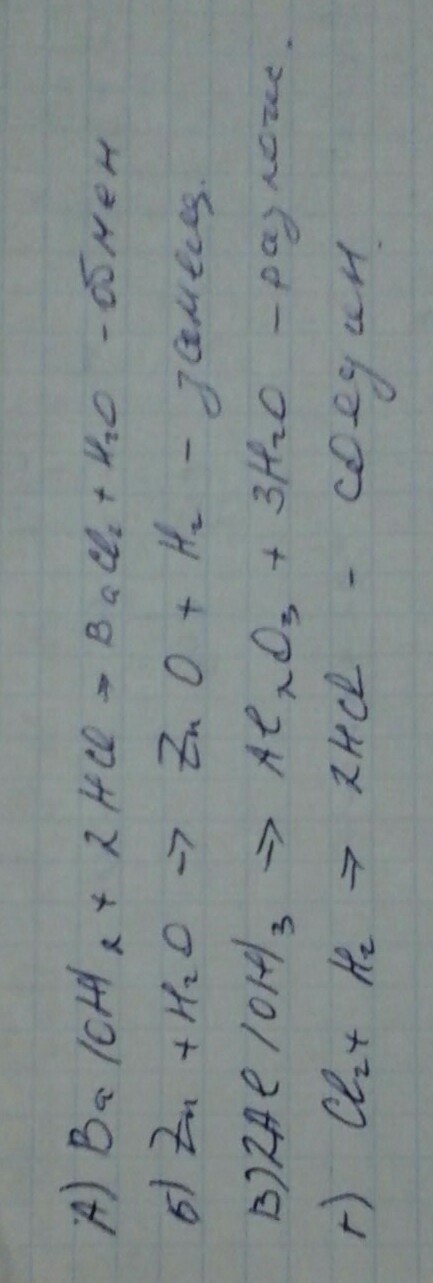 А) Ba(OH)₂ + 2HCl → BaCl₂ + H₂O - обмен
Б) Zn + H₂O ⇒ ZnO + H₂ - замещ.
В) 2Al(OH)₃ ⇒ Al₂O₃ + 3H₂O - разлож.
Г) Cl₂ + H₂ ⇒ 2HCl - соедин.